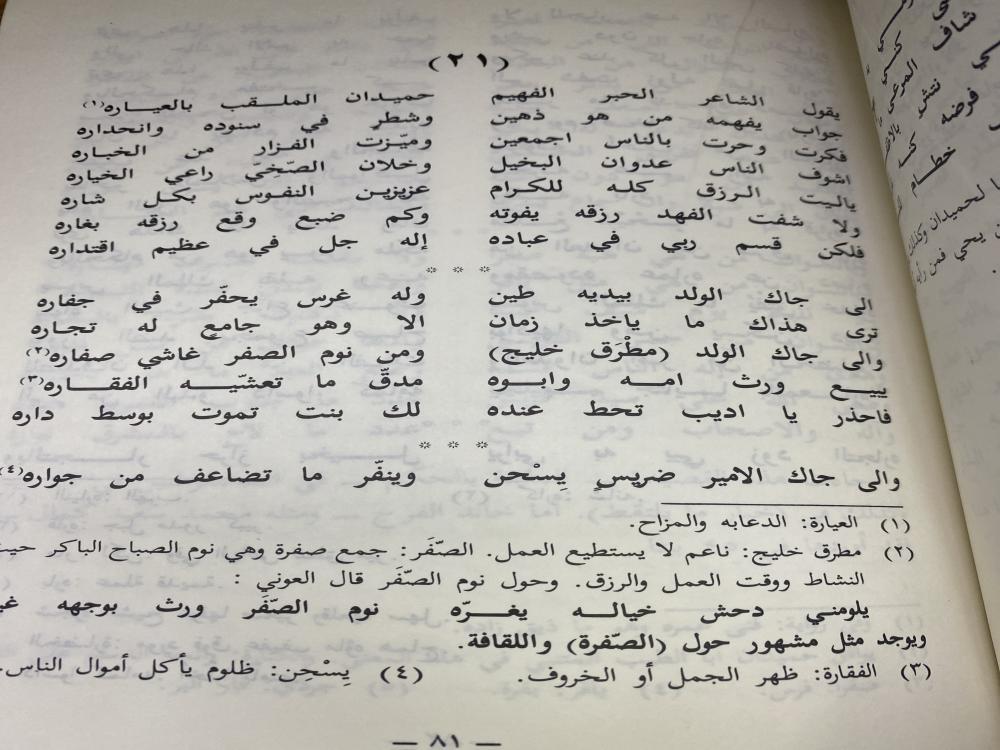 (٢١)
يقول الشاعر الحبر الفهيم حميدان الملـقب بالعيـاره(١)
جواب يفهمه من هو ذهين وشطر في سنوده وانحداره
فكرت وحرت بالناس اجمعين وميّزت الفـزار من الخباره
اشوف الناس عدوان البخيل وخلان الصّخيّ راعي الخياره
ياليت الـرزق كلـه للكـرام عزيزيـن النفـوس بكـل شاره
ولا شفت الفهد رزقه يفوته وكم ضبع وقع رزقه بغاره
فلكن قسم ربي في عباده إله جل في عظيم اقتداره
* * *
الى جاك الولد بيديه طين وله غرس يحفّر في جفاره
ترى هذاك ما ياخذ زمان الا وهو جامعٍ له تجاره
والى جاك الولد (مطْرَق خليج) ومن نوم الصفر غاشي صفاره(٢)
يبيـع ورث امـه وابـوه مدقٍّ ما تعشّيـه الفقـاره(٣)
فاحذر يا اديب تحط عنده لك بنت تموت بوسط داره
* * *
والى جاك الامير ضريسٍ يِسْحن وينفّر ما تضاعف من جواره(٤)
(١) العيارة: الدعابه والمزاح.
(٢) مطرق خليج: ناعم لا يستطيع العمل. الصّفَر: جمع صفرة وهي نوم الصباح الباكر حيث
النشاط ووقت العمل والرزق. وحول نوم الصّفَر قال العوني :
يلومني دحش خيالـه يغـرّه نوم الصّفَر ورث بوجهه
ويوجد مثل مشهور حول (الصّفرة) واللقافة.
(٣) الفقارة: ظهر الجمل أو الخروف. (٤) يِسْحِن: ظلوم يأكل أموال الناس.
— ٨١ —
شاف
المرعى
نتش
فرضه
خطام
لحميدان وكذلك
يحي فمن رأيه